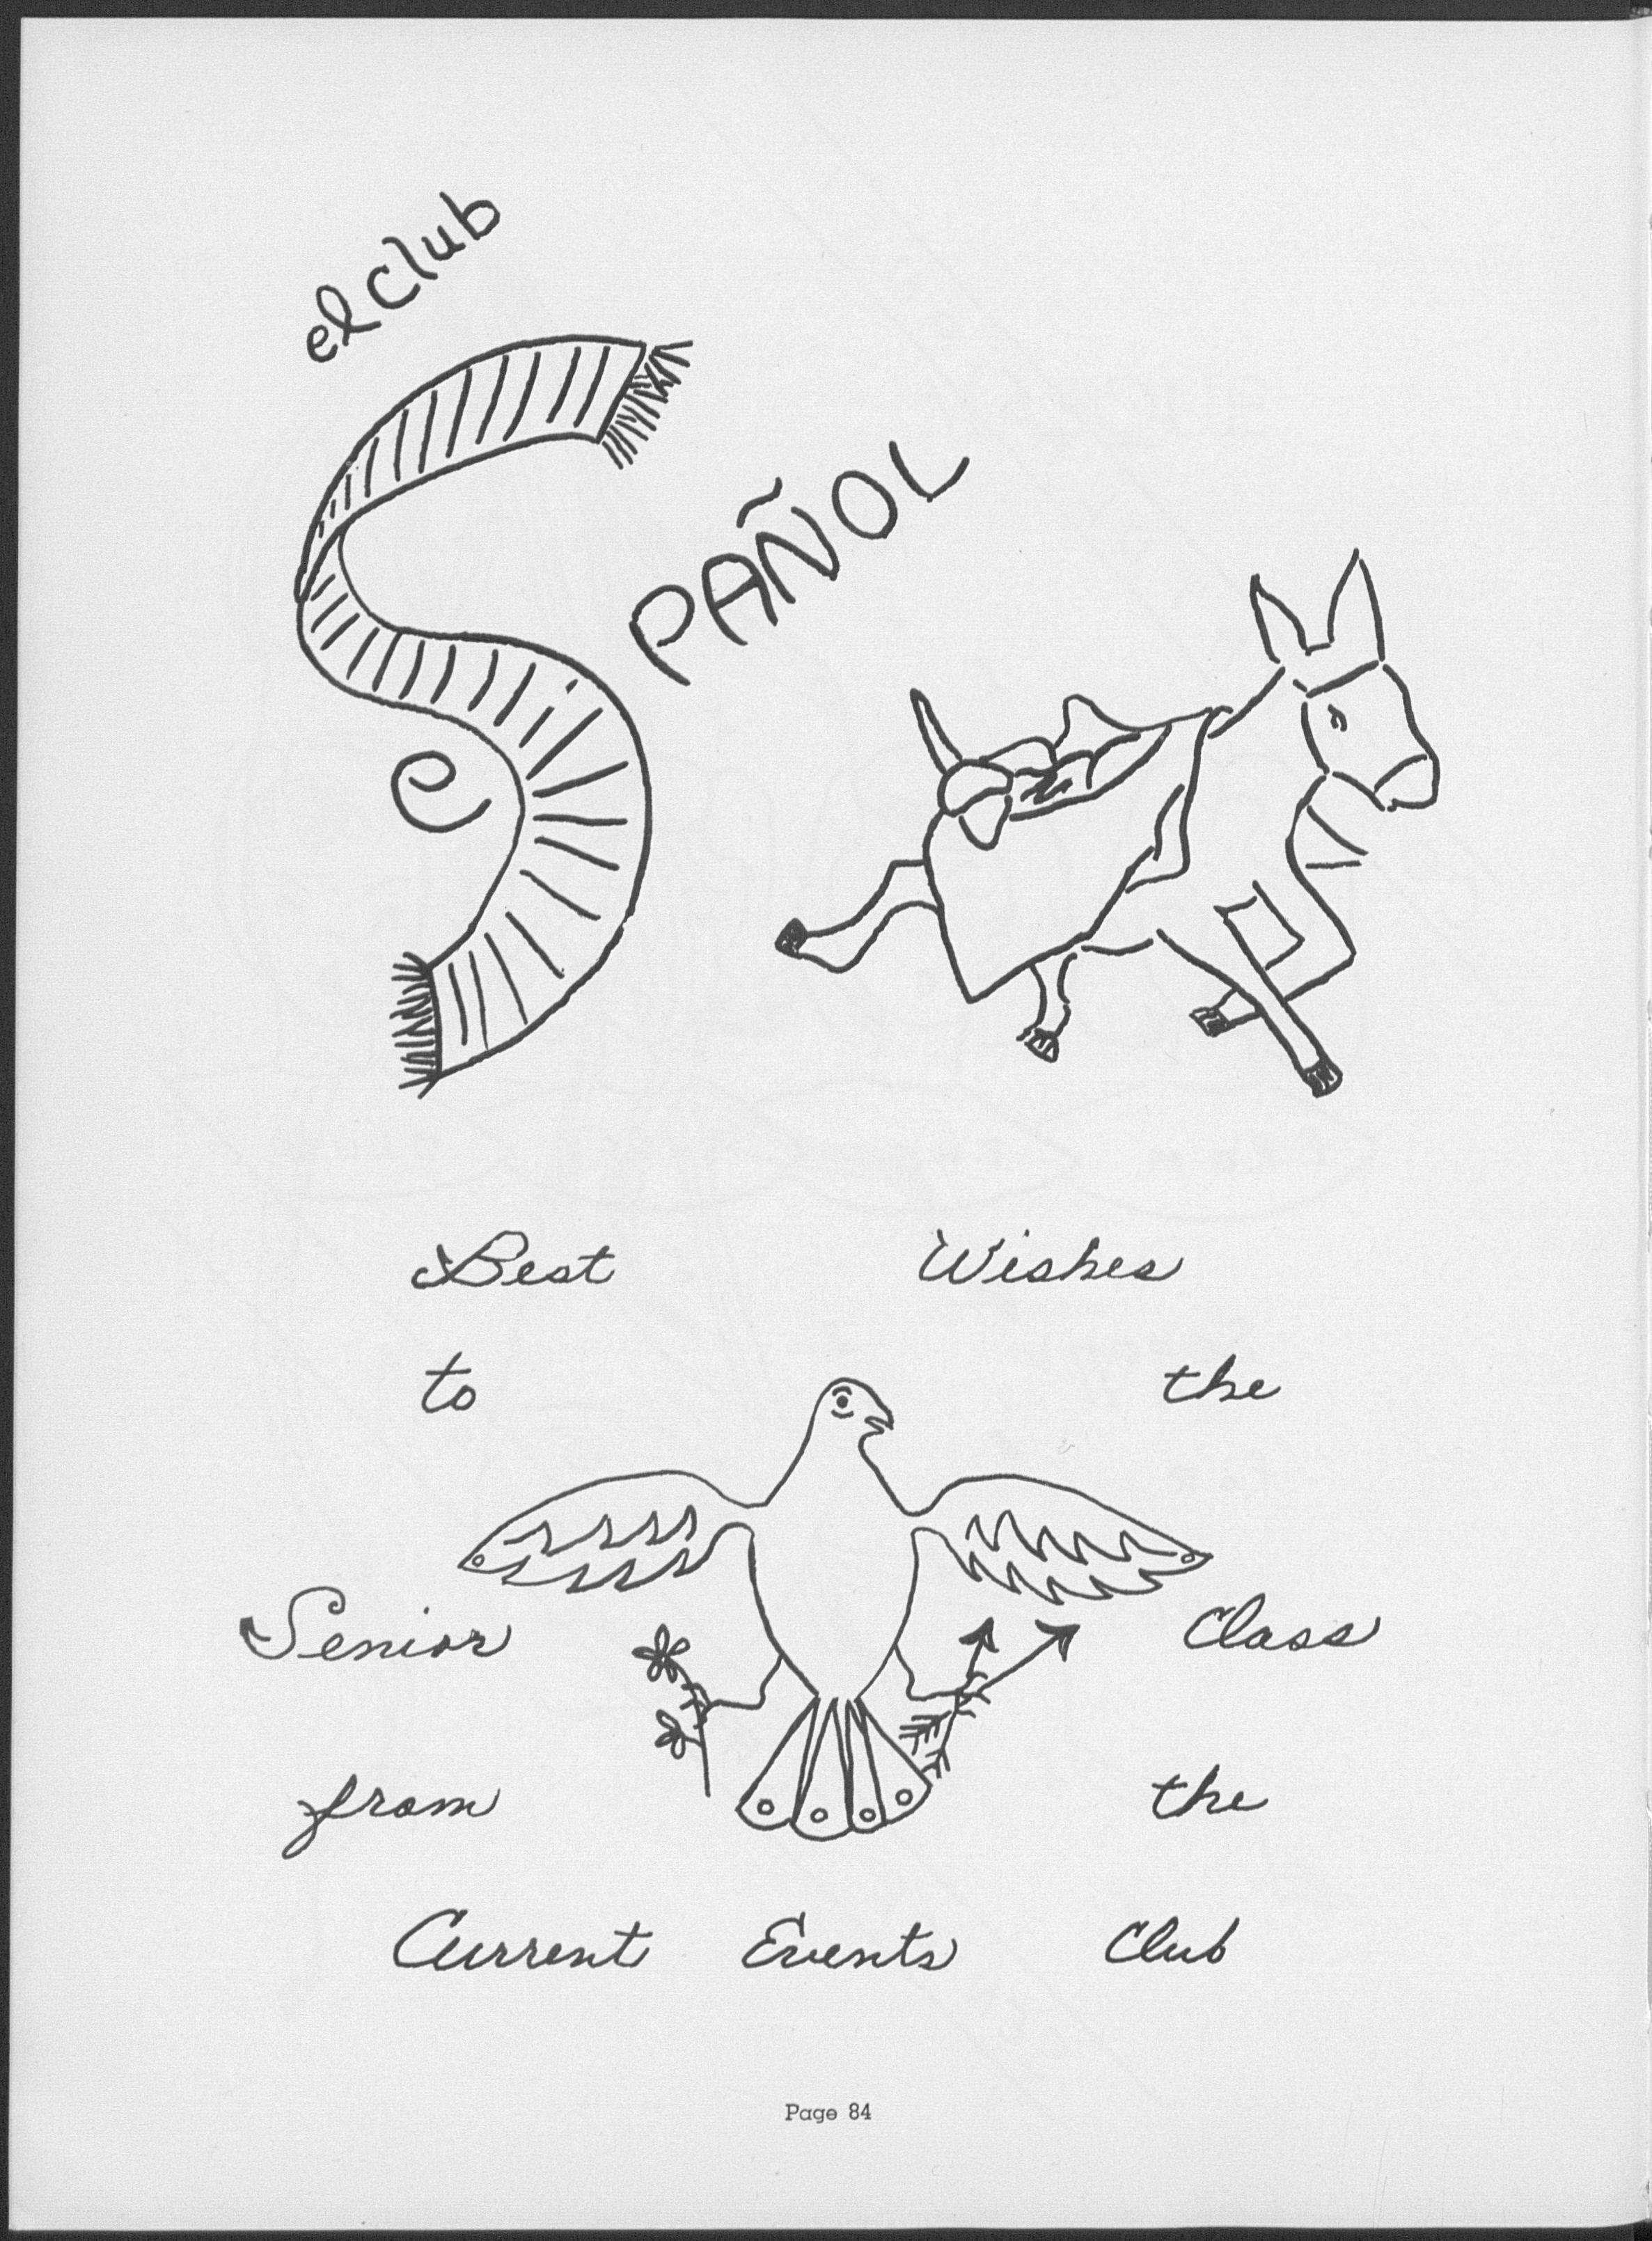 el club
eSPAÑOL
Best Wishes
to the
Senior Class
from the
Current Events Club
Page 84